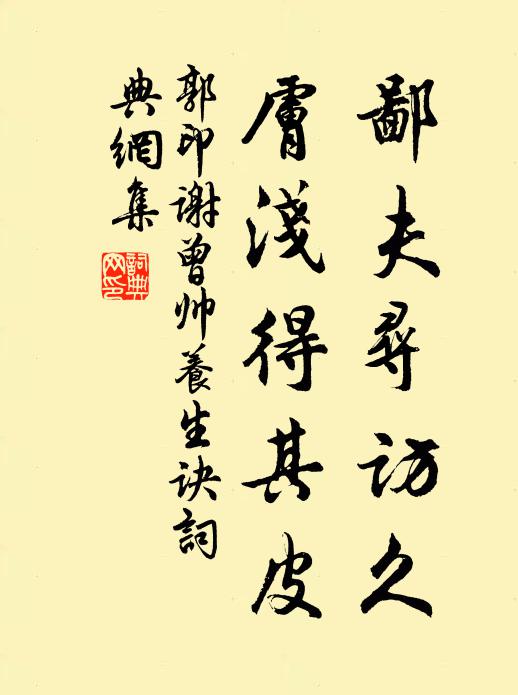 鄙夫尋访久
膚淺得其皮
郭印谢曾帅養生诀詞
典網集
詞典网印